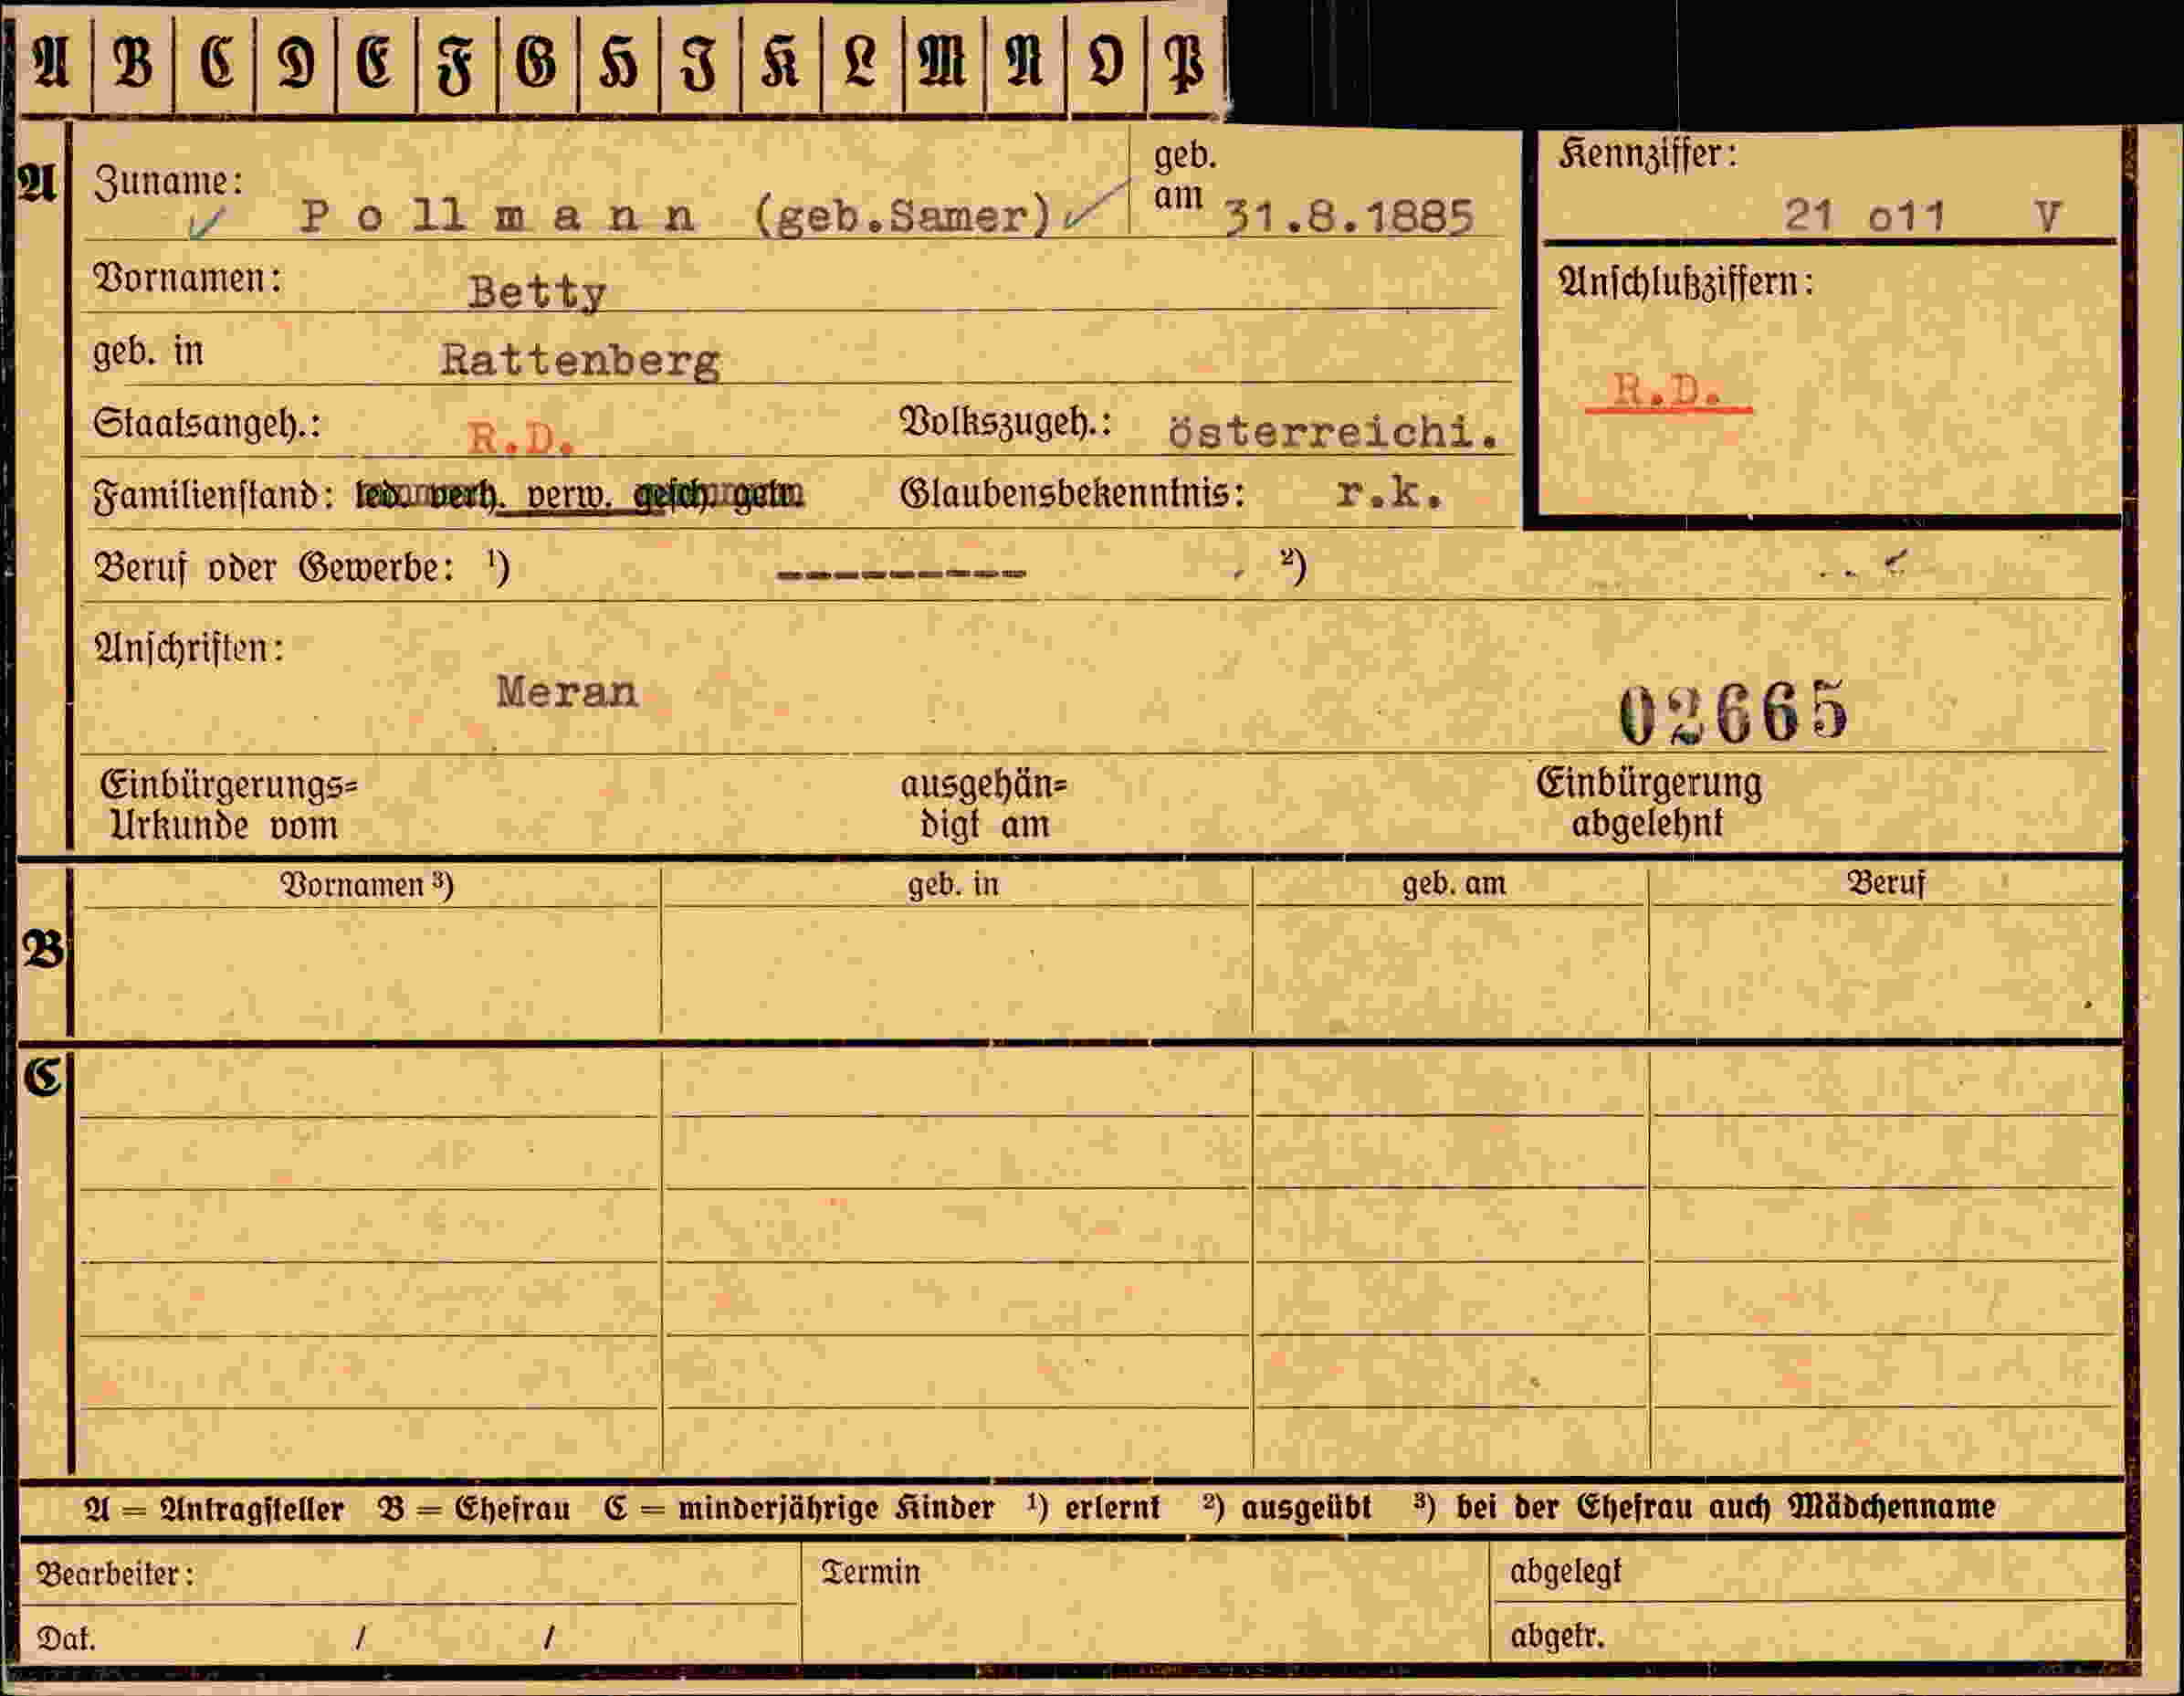 A B C D E F G H I K L M N O P
A Zuname: Pollmann (geb.Samer) geb. am 31.8.1885
Kennziffer: 21 o11 V
Vornamen: Betty
Anschlußziffern:
geb. in Rattenberg
R.D.
Staatsangeh.: R.D. Volkszugeh.: österreichi.
Familienstand: led. verh. verw. gesch. getr. Glaubensbekenntnis: r.k.
Beruf oder Gewerbe: ¹) --------- ²)
Anschriften:
Meran
02665
Einbürgerungs= ausgehän= Einbürgerung
Urkunde vom digt am abgelehnt
Vornamen ³) geb. in geb. am Beruf
B
C
A = Antragsteller B = Ehefrau C = minderjährige Kinder ¹) erlernt ²) ausgeübt ³) bei der Ehefrau auch Mädchenname
Bearbeiter: Termin abgelegt
Dat. / / abgetr.